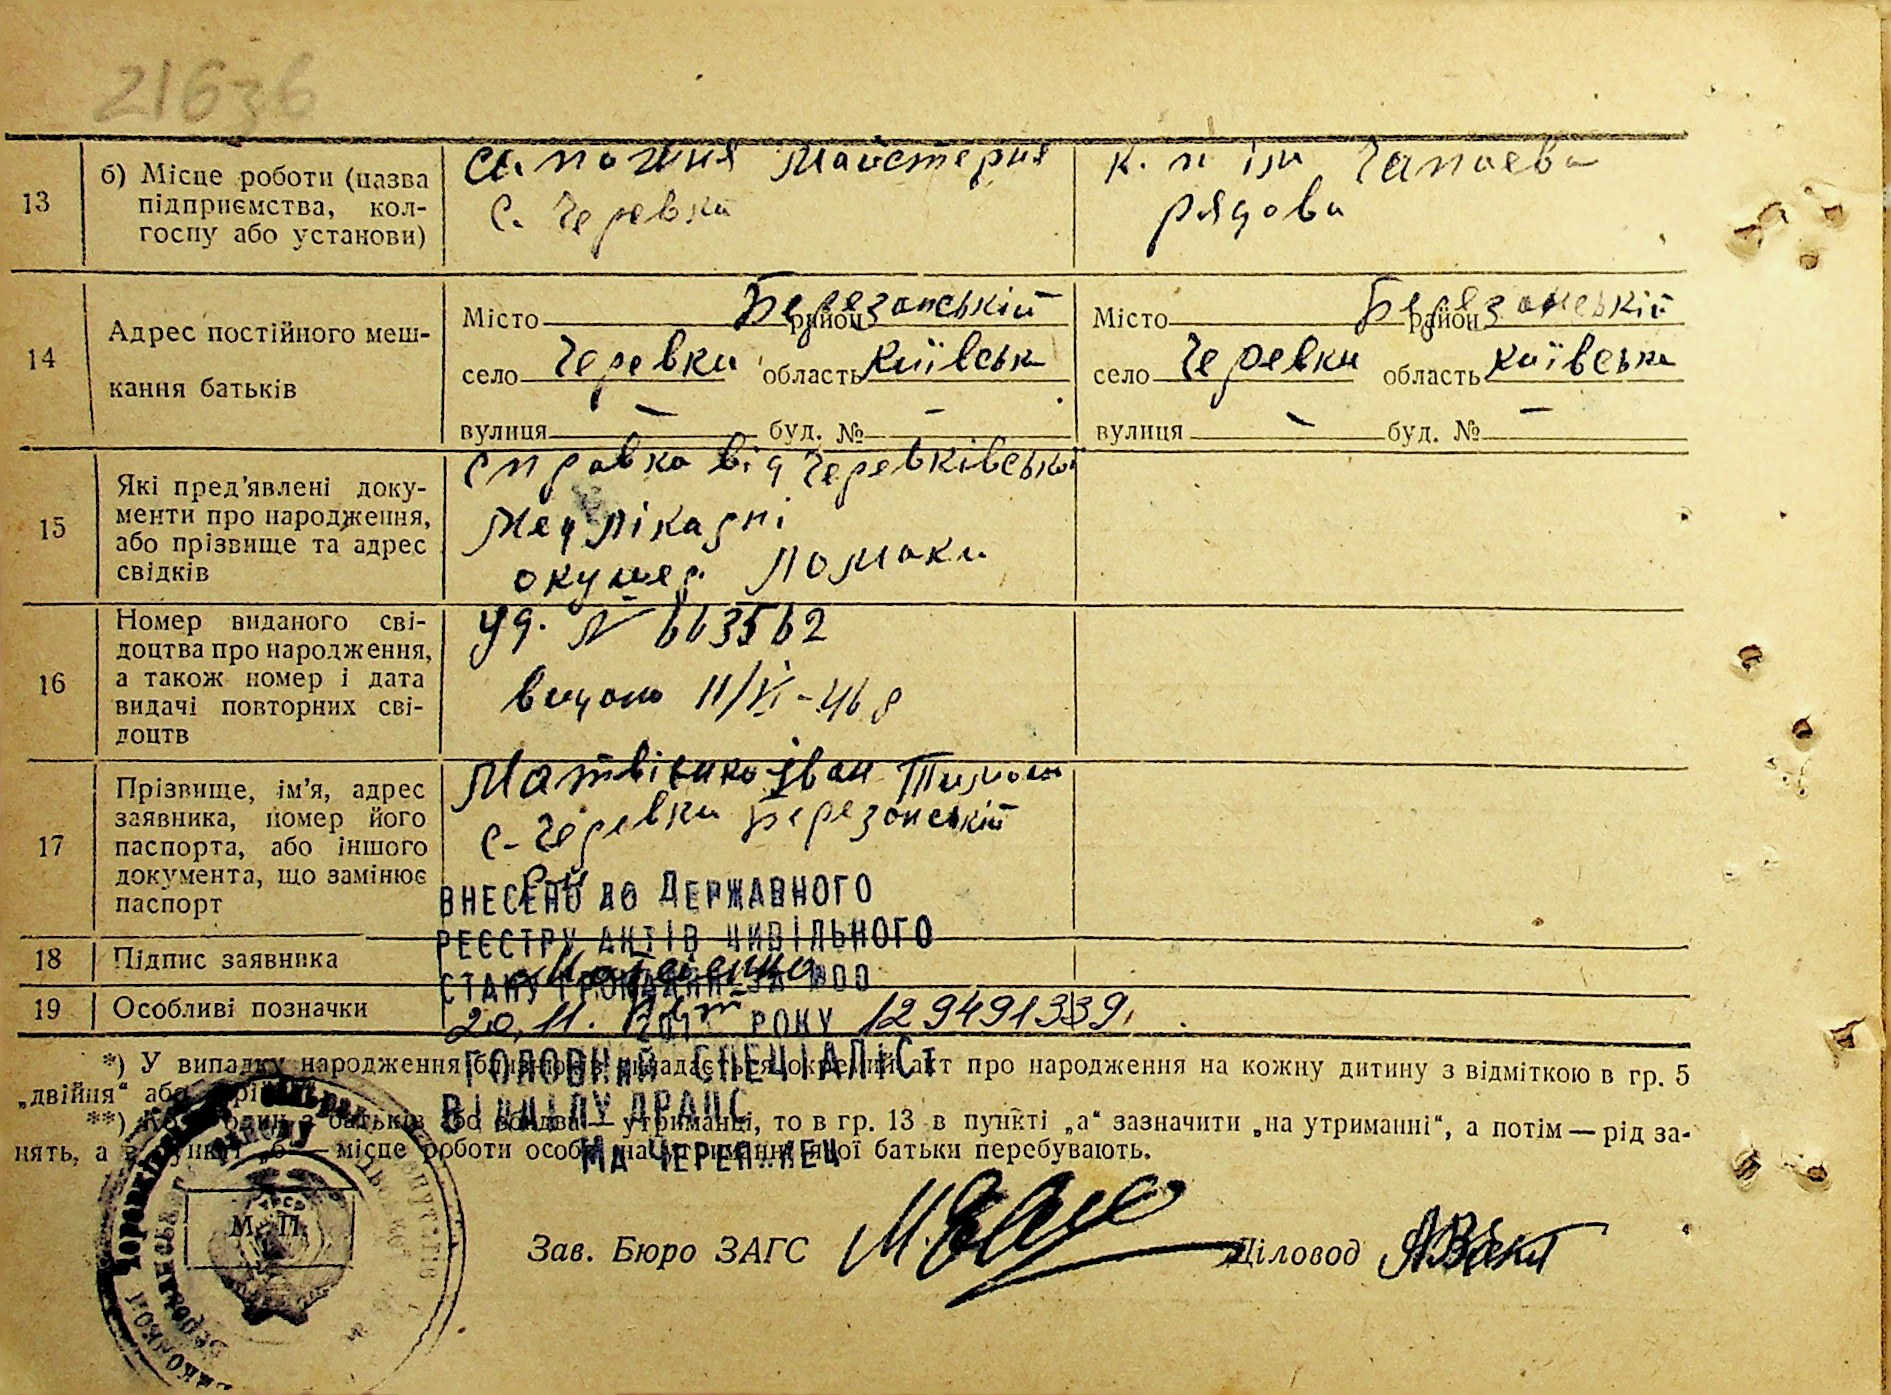 21636
13
б) Місце роботи (назва
підприємства, кол-
госпу або установи)
сапожня майстерня
с. Черевки
к. п ім Чапаева
рядова
14
Адрес постійного меш-
кання батьків
Місто район Березанській
село Черевки область Київськ
вулиця — буд. № —
Місто район Березанській
село Черевки область Київська
вулиця — буд. № —
15
Які пред’явлені доку-
менти про народження,
або прізвище та адрес
свідків
справка від Черевківської
Мед лікарні
окушер. Ломаки
16
Номер виданого сві-
доцтва про народження,
а також номер і дата
видачі повторних сві-
доцтв
уд. № 663562
видано 11/VI-46 р
17
Прізвище, ім’я, адрес
заявника, номер його
паспорта, або іншого
документа, що замінює
паспорт
Матвієнко Іван Тимош
с. Черевки Березанській
р-й
ВНЕСЕНО ДО ДЕРЖАВНОГО
РЕЄСТРУ АКТІВ ЦИВІЛЬНОГО
СТАНУ ГРОМАДЯН ЗА №00
18
Підпис заявника
Матвієнко
19
Особливі позначки
20.11. 201 РОКУ 129491339.
ГОЛОВНИЙ СПЕЦІАЛІСТ
ВІДДІЛУ ДРАЦС
*) У випадку народження складається окремий акт про народження на кожну дитину з відміткою в гр. 5
„двійня“ або
**) батьків або обидва — утриманці, то в гр. 13 в пункті „а“ зазначити „на утриманні“, а потім — рід за-
нять, а в пункті „б“ — місце роботи особи, на утриманні якої батьки перебувають.
М. П.
Зав. Бюро ЗАГС
Діловод